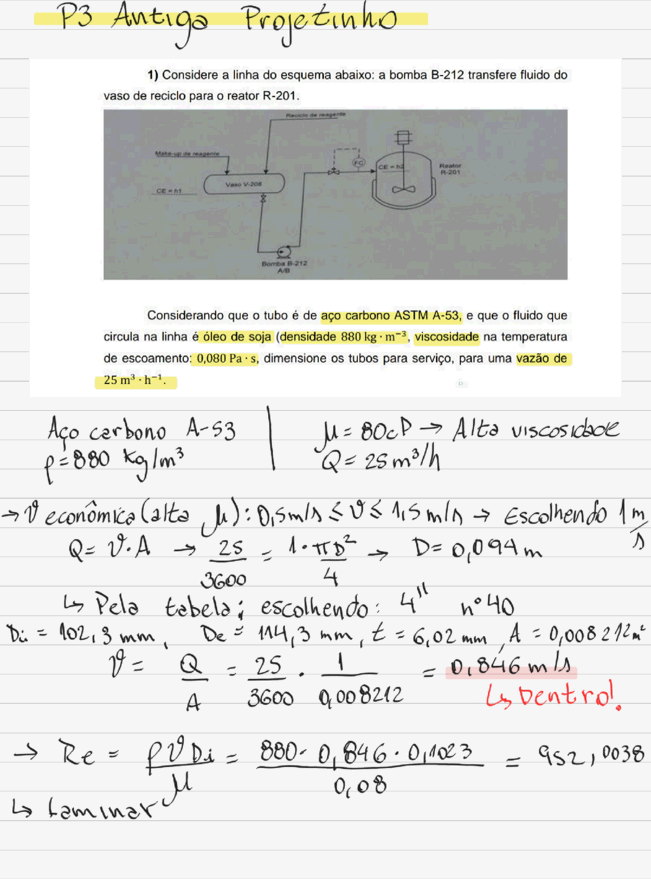 P3 Antiga Projetinho
1) Considere a linha do esquema abaixo: a bomba B-212 transfere fluido do
vaso de reciclo para o reator R-201.
Reciclo de reagente
Make-up de reagente
FC
CE = h2
Reator
R-201
Vaso V-208
CE = h1
Bomba B-212
A/B
Considerando que o tubo é de aço carbono ASTM A-53, e que o fluido que
circula na linha é óleo de soja (densidade 880 kg · m⁻³, viscosidade na temperatura
de escoamento: 0,080 Pa · s, dimensione os tubos para serviço, para uma vazão de
25 m³ · h⁻¹.
Aço carbono A-53
ρ=880 kg/m³
μ = 80cP → Alta viscosidade
Q = 25m³/h
→ v econômica (alta μ): 0,5m/s ≤ v ≤ 1,5m/s → Escolhendo 1 m/s
Q = v.A → 25/3600 = 1.πD²/4 → D = 0,094 m
↳ Pela tabela; escolhendo: 4" nº40
Di = 102,3 mm, De = 114,3 mm, t = 6,02 mm, A = 0,008212m²
v = Q/A = 25/3600 . 1/0,008212 = 0,846 m/s
↳ Dentro!
→ Re = ρvDi/μ = 880. 0,846. 0,1023/0,08 = 952,0038
↳ Laminar